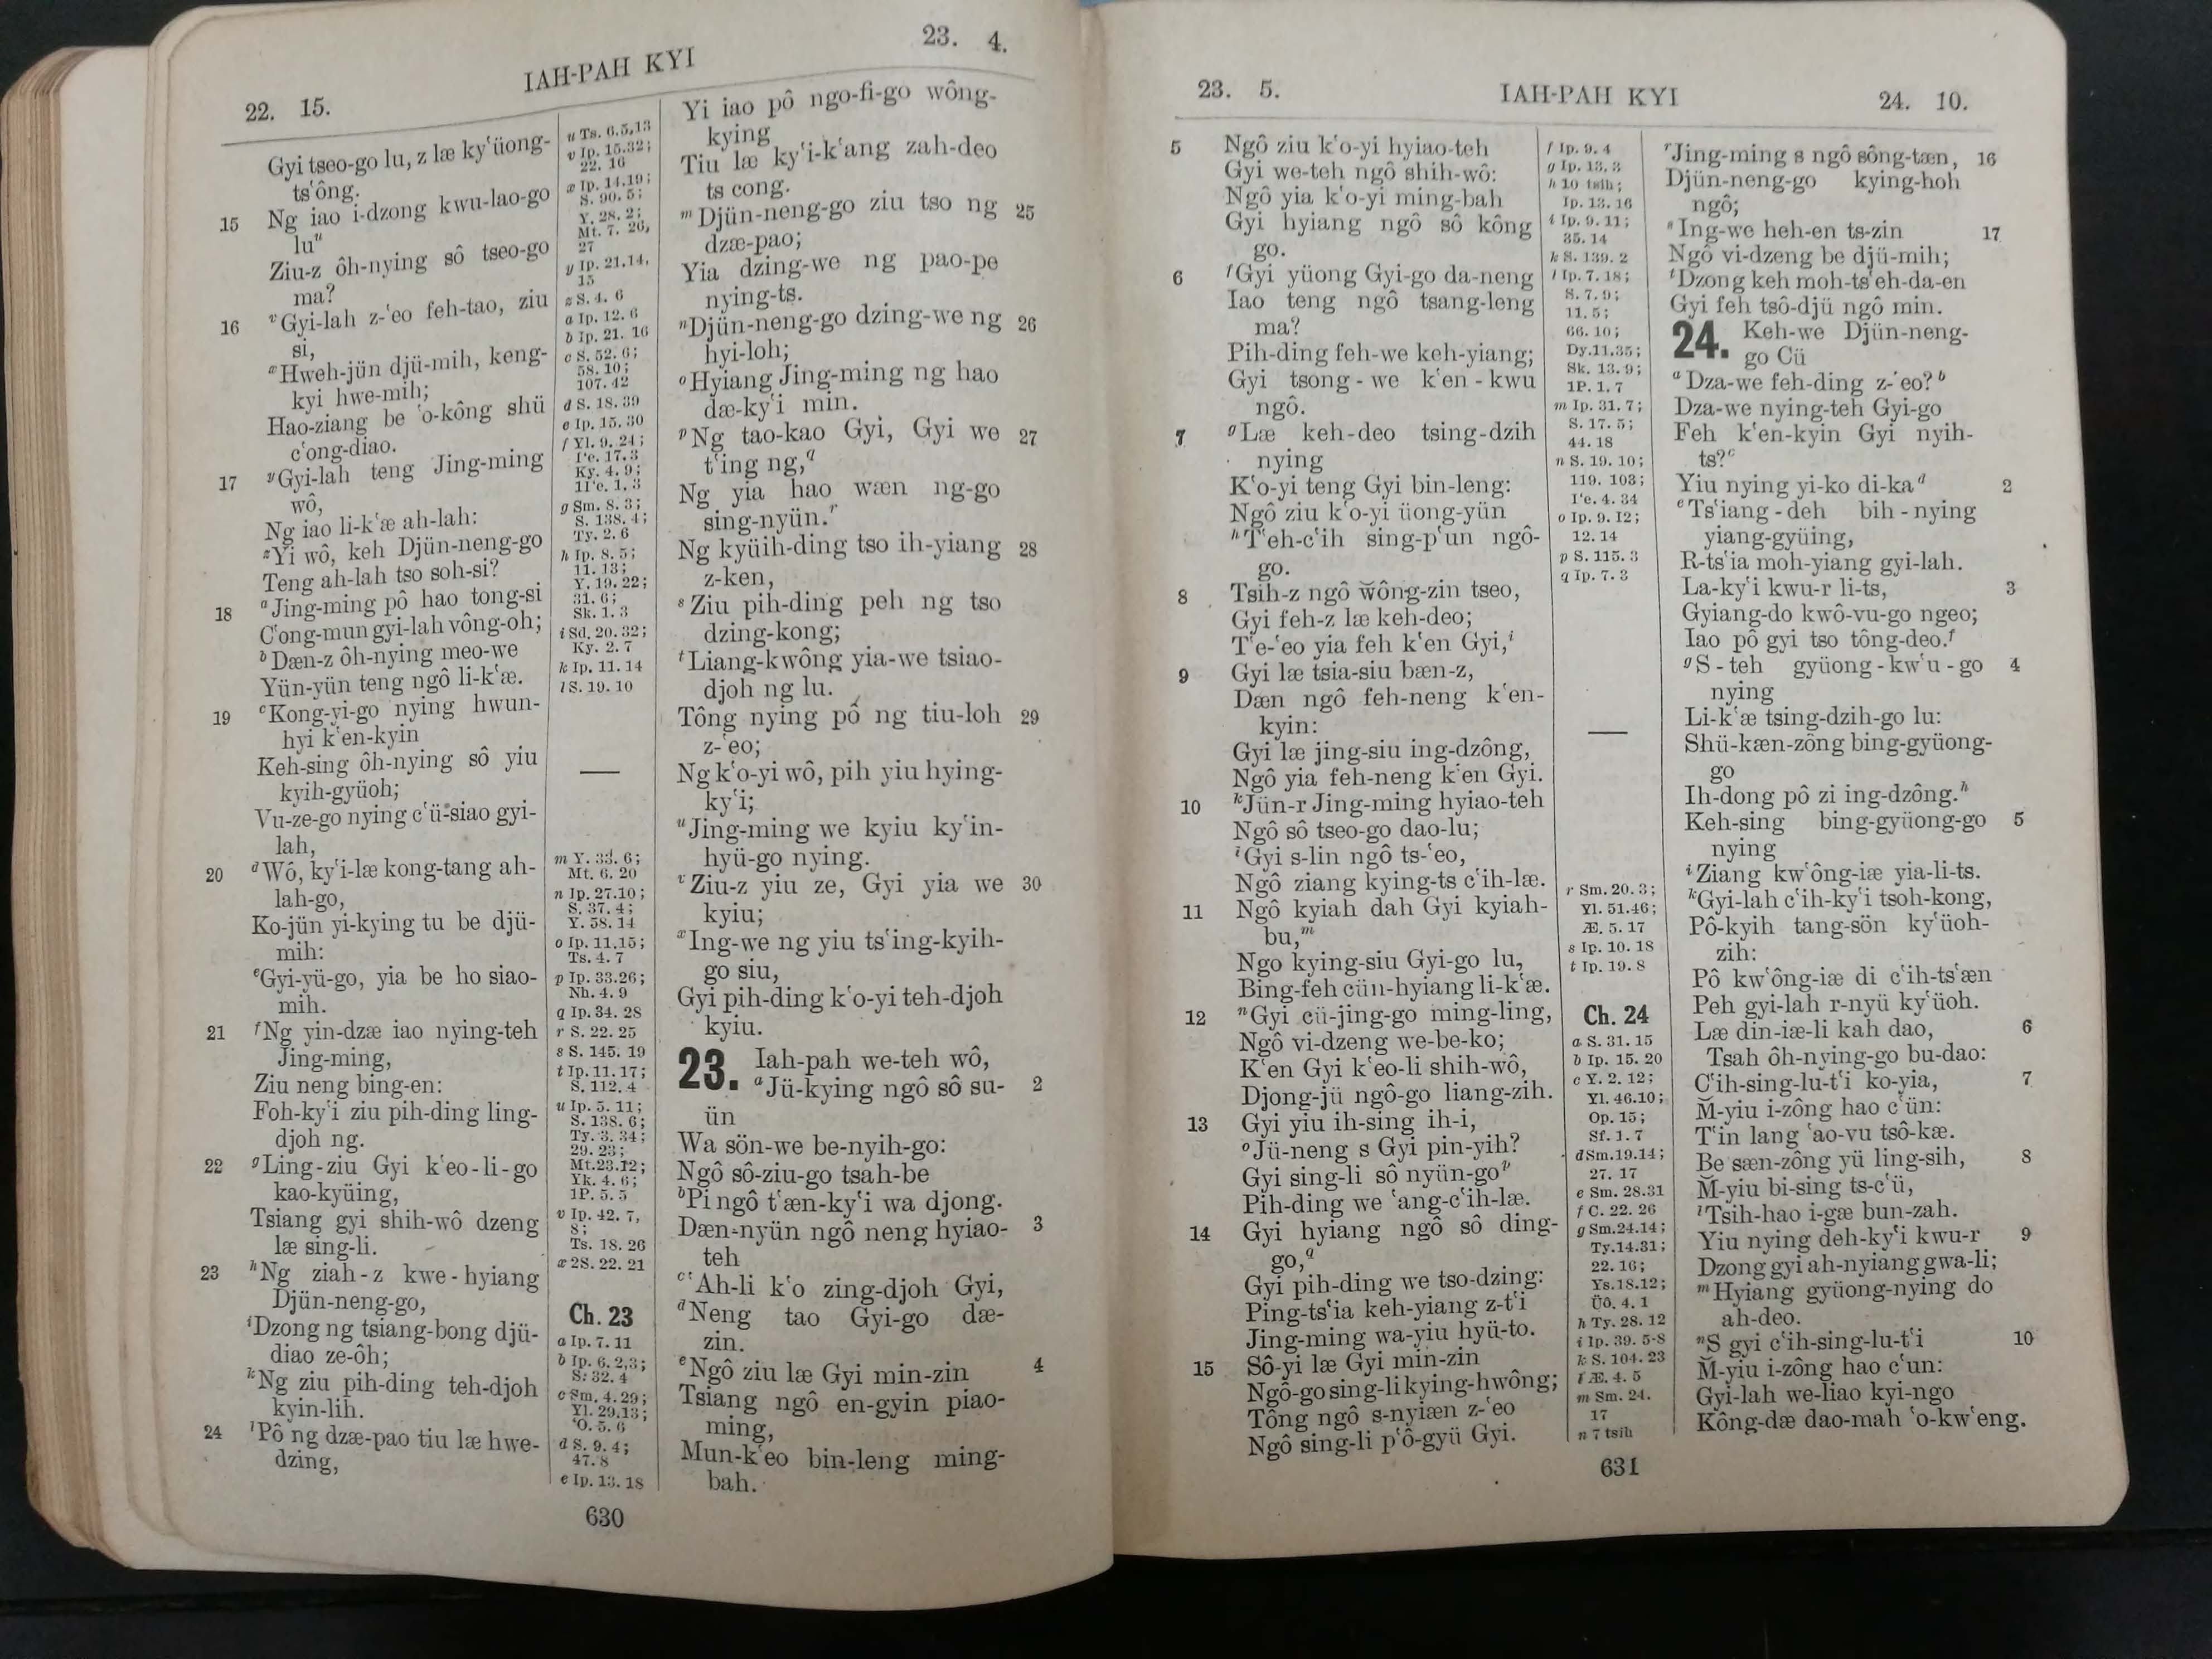 22. 15.
IAH-PAH KYI
23. 4.
Gyi tseo-go lu, z læ kyʻüong-
tsʻông.
15 Ng iao i-dzong kwu-lao-go
luᵘ
Ziu-z ôh-nying sô tseo-go
ma?
16 ᵛGyi-lah z-ʻeo feh-tao, ziu
si,
ˣHweh-jün djü-mih, keng-
kyi hwe-mih;
Hao-ziang be ʻo-kông shü
cʻong-diao.
17 ʸGyi-lah teng Jing-ming
wô,
Ng iao li-kʻæ ah-lah:
ᶻYi wô, keh Djün-neng-go
Teng ah-lah tso soh-si?
18 ᵃJing-ming pô hao tong-si
Cʻong-mun gyi-lah vông-oh;
ᵇDæn-z ôh-nying meo-we
Yün-yün teng ngô li-kʻæ.
19 ᶜKong-yi-go nying hwun-
hyi kʻen-kyin
Keh-sing ôh-nying sô yiu
kyih-gyüoh;
Vu-ze-go nying cʻü-siao gyi-
lah,
20 ᵈWô, kyʻi-læ kong-tang ah-
lah-go,
Ko-jün yi-kying tu be djü-
mih:
ᵉGyi-yü-go, yia be ho siao-
mih.
21 ᶠNg yin-dzæ iao nying-teh
Jing-ming,
Ziu neng bing-en:
Foh-kyʻi ziu pih-ding ling-
djoh ng.
22 ᵍLing-ziu Gyi kʻeo-li-go
kao-kyüing,
Tsiang gyi shih-wô dzeng
læ sing-li.
23 ʰNg ziah-z kwe-hyiang
Djün-neng-go,
ⁱDzong ng tsiang-bong djü-
diao ze-ôh;
ᵏNg ziu pih-ding teh-djoh
kyin-lih.
24 ˡPô ng dzæ-pao tiu læ hwe-
dzing,
u Ts. 6.5,13
v Ip. 15.32;
22. 16
x Ip. 14.19;
S. 90. 5;
Y. 28. 2;
Mt. 7. 26,
27
y Ip. 21.14,
15
z S. 4. 6
a Ip. 12. 6
b Ip. 21. 16
c S. 52. 6;
58. 10;
107. 42
d S. 18. 39
e Ip. 15. 30
f Yl. 9. 24;
Iʻe. 17. 3
Ky. 4. 9;
1Iʻe. 1. 3
g Sm. 8. 3;
S. 138. 4;
Ty. 2. 6
h Ip. 8. 5;
11. 13;
Y. 19. 22;
31. 6;
Sk. 1. 3
i Sd. 20. 32;
Ky. 2. 7
k Ip. 11. 14
l S. 19. 10
m Y. 33. 6;
Mt. 6. 20
n Ip. 27.10;
S. 37. 4;
Y. 58. 14
o Ip. 11.15;
Ts. 4. 7
p Ip. 33.26;
Nh. 4. 9
q Ip. 34. 28
r S. 22. 25
s S. 145. 19
t Ip. 11.17;
S. 112. 4
u Ip. 5. 11;
S. 138. 6;
Ty. 3. 34;
29. 23;
Mt.23.12;
Yk. 4. 6;
1P. 5. 5
v Ip. 42. 7,
8;
Ts. 18. 26
x 2S. 22. 21
Ch. 23
a Ip. 7. 11
b Ip. 6. 2,3;
S. 32. 4
c Sm. 4. 29;
Yl. 29.13;
ʻO. 5. 6
d S. 9. 4;
47. 8
e Ip. 13. 18
Yi iao pô ngo-fi-go wông-
kying
Tiu læ kyʻi-kʻang zah-deo
ts cong.
ᵐDjün-neng-go ziu tso ng 25
dzæ-pao;
Yia dzing-we ng pao-pe
nying-ts.
ⁿDjün-neng-go dzing-we ng 26
hyi-loh;
ᵒHyiang Jing-ming ng hao
dæ-kyʻi min.
ᵖNg tao-kao Gyi, Gyi we 27
tʻing ng,ᑫ
Ng yia hao wæn ng-go
sing-nyün.ʳ
Ng kyüih-ding tso ih-yiang 28
z-ken,
ˢZiu pih-ding peh ng tso
dzing-kong;
ᵗLiang-kwông yia-we tsiao-
djoh ng lu.
Tông nying pô ng tiu-loh 29
z-ʻeo;
Ng kʻo-yi wô, pih yiu hying-
kyʻi;
ᵘJing-ming we kyiu kyʻin-
hyü-go nying.
ᵛZiu-z yiu ze, Gyi yia we 30
kyiu;
ˣIng-we ng yiu tsʻing-kyih-
go siu,
Gyi pih-ding kʻo-yi teh-djoh
kyiu.
23. Iah-pah we-teh wô,
ᵃJü-kying ngô sô su- 2
ün
Wa sön-we be-nyih-go:
Ngô sô-ziu-go tsah-be
ᵇPi ngô tʻæn-kyʻi wa djong.
Dæn-nyün ngô neng hyiao- 3
teh
ᶜʻAh-li kʻo zing-djoh Gyi,
ᵈNeng tao Gyi-go dæ-
zin.
ᵉNgô ziu læ Gyi min-zin 4
Tsiang ngô en-gyin piao-
ming,
Mun-kʻeo bin-leng ming-
bah.
630
23. 5.
IAH-PAH KYI
24. 10.
5 Ngô ziu kʻo-yi hyiao-teh
Gyi we-teh ngô shih-wô:
Ngô yia kʻo-yi ming-bah
Gyi hyiang ngô sô kông
go.
6 ᶠGyi yüong Gyi-go da-neng
Iao teng ngô tsang-leng
ma?
Pih-ding feh-we keh-yiang;
Gyi tsong-we kʻen-kwu
ngô.
7 ᵍLæ keh-deo tsing-dzih
nying
Kʻo-yi teng Gyi bin-leng:
Ngô ziu kʻo-yi üong-yün
ʰTʻeh-cʻih sing-pʻun ngô-
go.
8 Tsih-z ngô wông-zin tseo,
Gyi feh-z læ keh-deo;
Tʻe-ʻeo yia feh kʻen Gyi,ⁱ
9 Gyi læ tsia-siu bæn-z,
Dæn ngô feh-neng kʻen-
kyin:
Gyi læ jing-siu ing-dzông,
Ngô yia feh-neng kʻen Gyi.
10 ᵏJün-r Jing-ming hyiao-teh
Ngô sô tseo-go dao-lu;
ˡGyi s-lin ngô ts-ʻeo,
Ngô ziang kying-ts cʻih-læ.
11 Ngô kyiah dah Gyi kyiah-
bu,ᵐ
Ngo kying-siu Gyi-go lu,
Bing-feh cün-hyiang li-kʻæ.
12 ⁿGyi cü-jing-go ming-ling,
Ngô vi-dzeng we-be-ko;
Kʻen Gyi kʻeo-li shih-wô,
Djong-jü ngô-go liang-zih.
13 Gyi yiu ih-sing ih-i,
ᵒJü-neng s Gyi pin-yih?
Gyi sing-li sô nyün-goᵖ
Pih-ding we ʻang-cʻih-læ.
14 Gyi hyiang ngô sô ding-
go,ᑫ
Gyi pih-ding we tso-dzing:
Ping-tsʻia keh-yiang z-tʻi
Jing-ming wa-yiu hyü-to.
15 Sô-yi læ Gyi min-zin
Ngô-go sing-li kying-hwông;
Tông ngô s-nyiæn z-ʻeo
Ngô sing-li pʻô-gyü Gyi.
f Ip. 9. 4
g Ip. 13. 3
h 10 tsih;
Ip. 13. 16
i Ip. 9. 11;
35. 14
k S. 139. 2
l Ip. 7. 18;
S. 7. 9;
11. 5;
66. 10;
Dy.11.35;
Sk. 13. 9;
1P. 1. 7
m Ip. 31. 7;
S. 17. 5;
44. 18
n S. 19. 10;
119. 103;
Iʻe. 4. 34
o Ip. 9. 12;
12. 14
p S. 115. 3
q Ip. 7. 3
r Sm. 20. 3;
Yl. 51.46;
Æ. 5. 17
s Ip. 10. 18
t Ip. 19. 8
Ch. 24
a S. 31. 15
b Ip. 15. 20
c Y. 2. 12;
Yl. 46.10;
Op. 15;
Sf. 1. 7
d Sm.19.14;
27. 17
e Sm. 28.31
f C. 22. 26
g Sm.24.14;
Ty.14.31;
22. 16;
Ys.18.12;
Üô. 4. 1
h Ty. 28. 12
i Ip. 39. 5-8
k S. 104. 23
l Æ. 4. 5
m Sm. 24.
17
n 7 tsih
ʳJing-ming s ngô sông-tæn, 16
Djün-neng-go kying-hoh
ngô;
ˢIng-we heh-en ts-zin 17
Ngô vi-dzeng be djü-mih;
ᵗDzong keh moh-tsʻeh-da-en
Gyi feh tsô-djü ngô min.
24. Keh-we Djün-neng-
go Cü
ᵃDza-we feh-ding z-ʻeo?ᵇ
Dza-we nying-teh Gyi-go
Feh kʻen-kyin Gyi nyih-
ts?ᶜ
Yiu nying yi-ko di-kaᵈ 2
ᵉTsʻiang-deh bih-nying
yiang-gyüing,
R-tsʻia moh-yiang gyi-lah.
La-kyʻi kwu-r li-ts, 3
Gyiang-do kwô-vu-go ngeo;
Iao pô gyi tso tông-deo.ᶠ
ᵍS-teh gyüong-kwʻu-go 4
nying
Li-kʻæ tsing-dzih-go lu:
Shü-kæn-zông bing-gyüong-
go
Ih-dong pô zi ing-dzông.ʰ
Keh-sing bing-gyüong-go 5
nying
ⁱZiang kwʻông-iæ yia-li-ts.
ᵏGyi-lah cʻih-kyʻi tsoh-kong,
Pô-kyih tang-sön kyʻüoh-
zih:
Pô kwʻông-iæ di cʻih-tsʻæn
Peh gyi-lah r-nyü kyʻüoh.
Læ din-iæ-li kah dao, 6
Tsah ôh-nying-go bu-dao:
Cʻih-sing-lu-tʻi ko-yia, 7
M̆-yiu i-zông hao cʻün:
Tʻin lang ʻao-vu tsô-kæ.
Be sæn-zông yü ling-sih, 8
M̆-yiu bi-sing ts-cʻü,
ˡTsih-hao i-gæ bun-zah.
Yiu nying deh-kyʻi kwu-r 9
Dzong gyi ah-nyiang gwa-li;
ᵐHyiang gyüong-nying do
ah-deo.
ⁿS gyi cʻih-sing-lu-tʻi 10
M̆-yiu i-zông hao cʻun:
Gyi-lah we-liao kyi-ngo
Kông-dæ dao-mah ʻo-kwʻeng.
631